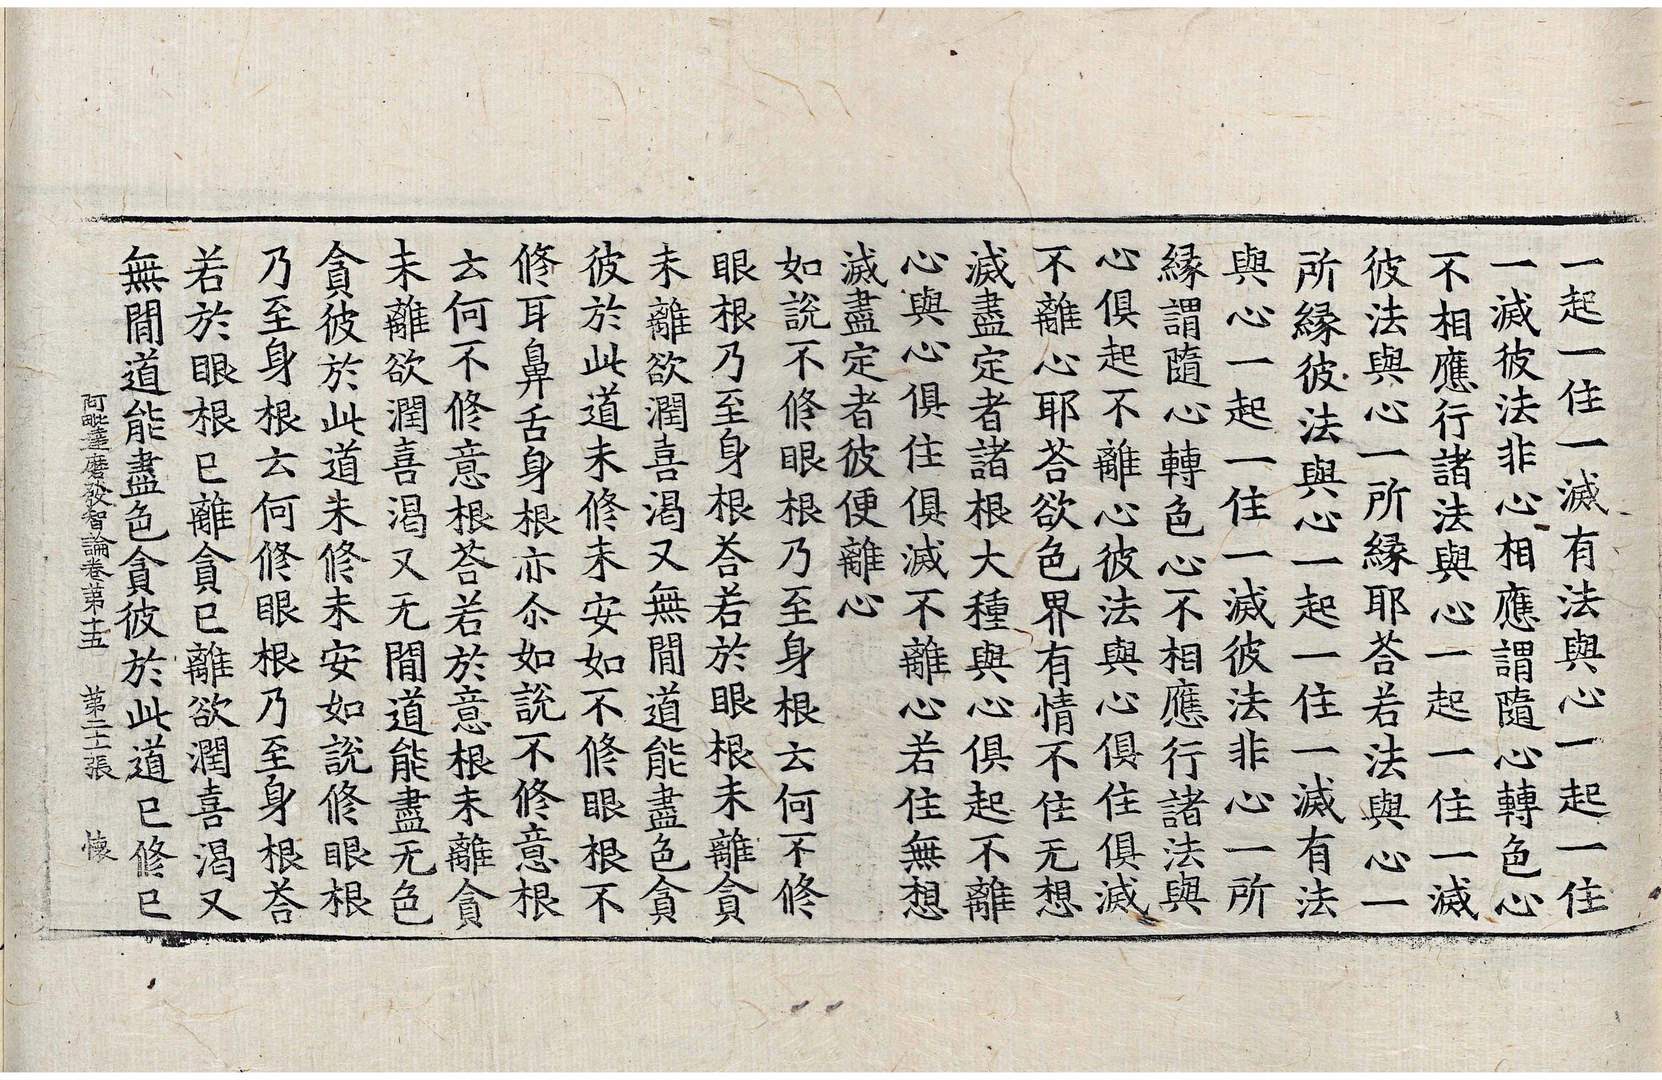 一起一住一滅有法與心一起一住
一滅彼法非心相應謂隨心轉色心
不相應行諸法與心一起一住一滅
彼法與心一所縁耶荅若法與心一
所縁彼法與心一起一住一滅有法
與心一起一住一滅彼法非心一所
縁謂隨心轉色心不相應行諸法與
心俱起不離心彼法與心俱住俱滅
不離心耶荅欲色界有情不住无想
滅盡定者諸根大種與心俱起不離
心與心俱住俱滅不離心若住無想
滅盡定者彼便離心
如說不修眼根乃至身根云何不修
眼根乃至身根荅若於眼根未離貪
未離欲潤喜渴又無間道能盡色貪
彼於此道未修未安如不修眼根不
修耳鼻舌身根亦尒如說不修意根
云何不修意根荅若於意根未離貪
未離欲潤喜渴又无間道能盡无色
貪彼於此道未修未安如說修眼根
乃至身根云何修眼根乃至身根荅
若於眼根已離貪已離欲潤喜渴又
無間道能盡色貪彼於此道已修已
阿毗達磨發智論卷苐十五 苐二十二張 懐